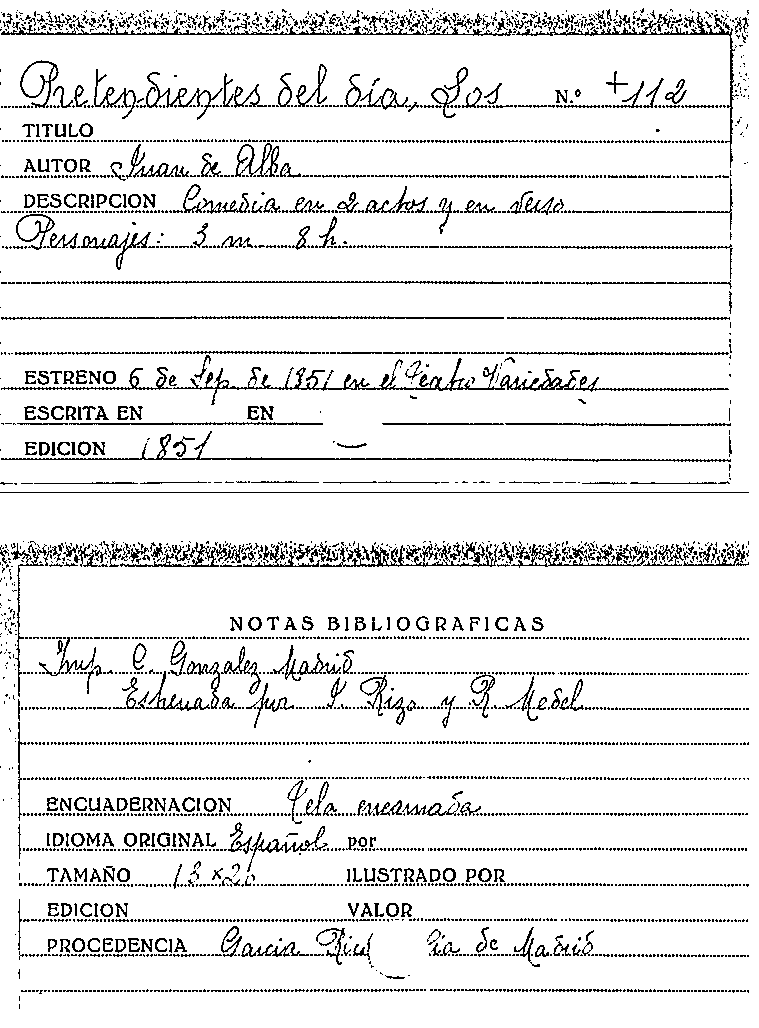 Pretendientes del día, Los N.º +112
TITULO
AUTOR Juan de Alba
DESCRIPCION Comedia en 2 actos y en verso
Personajes: 3 m 8 h.
ESTRENO 6 de Sep. de 1851 en el Teatro Variedades
ESCRITA EN EN
EDICION 1851
NOTAS BIBLIOGRAFICAS
Imp. C. Gonzalez Madrid
Estrenada por J. Rizo y R. Medel
ENCUADERNACION Tela encarnada
IDIOMA ORIGINAL Español por
TAMAÑO 13 x
ILUSTRADO POR
EDICION VALOR
PROCEDENCIA Garcia Rico Cia de Madrid